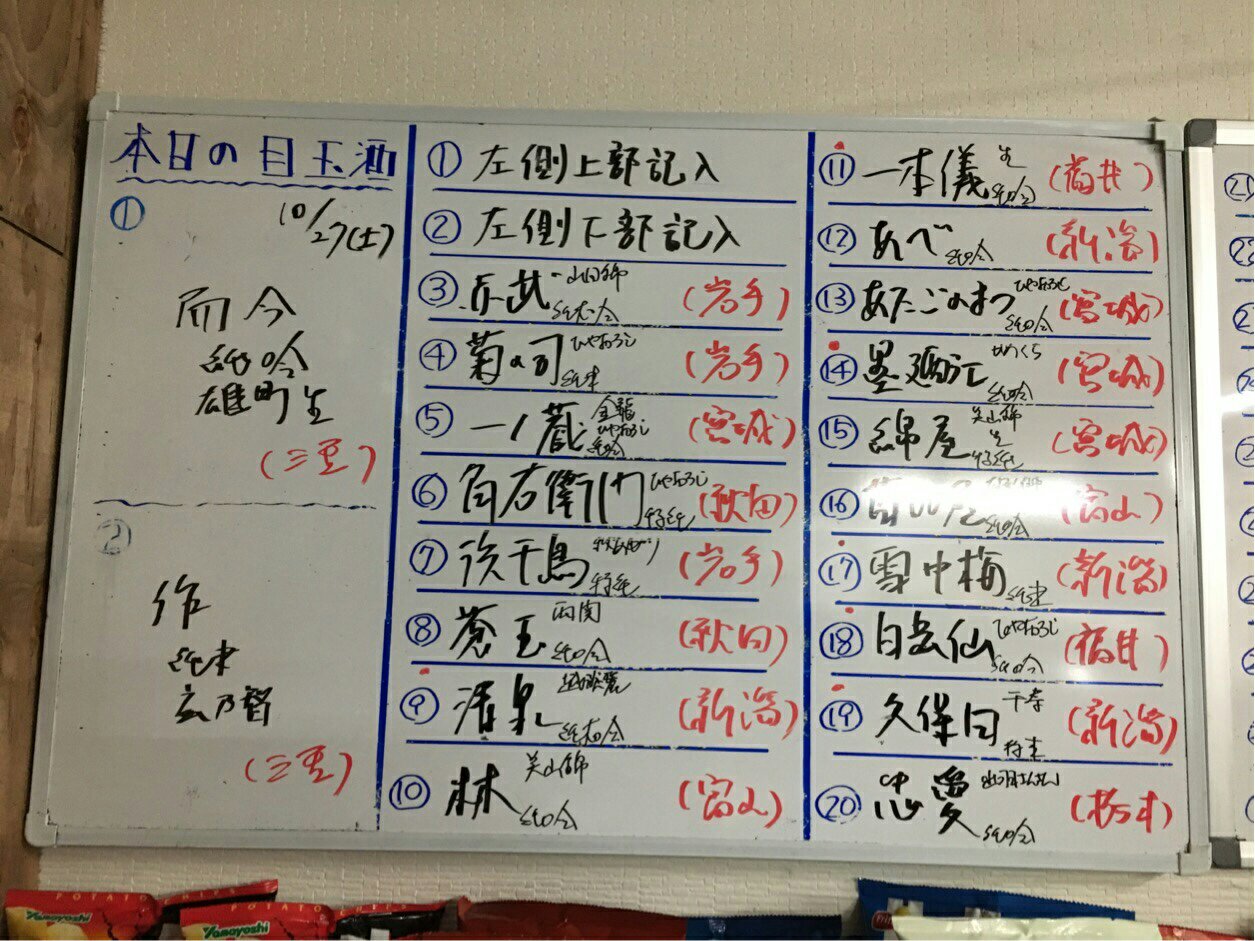 本日の目玉酒
① 10/27(土)
而今
純吟
雄町 生
(三重)
②
作
純米
玄乃智
(三重)
① 左側上部記入
② 左側下部記入
③ 赤武 山田錦 (岩手)
④ 菊の司 ひやおろし 純米 (岩手)
⑤ 一ノ蔵 金龍 ひやおろし 純吟 (宮城)
⑥ 角右衛門 ひやおろし 特純 (秋田)
⑦ 浜千鳥 特純 (岩手)
⑧ 蒼玉 両関 純吟 (秋田)
⑨ 清泉 越淡麗 (新潟)
⑩ 林 美山錦 純吟 (富山)
⑪ 一本義 生 純吟 (福井)
⑫ あべ 純吟 (新潟)
⑬ あたごのまつ ひやおろし 純吟 (宮城)
⑭ 墨廼江 純吟 (宮城)
⑮ 綿屋 美山錦 生 特純 (宮城)
⑯ 純吟 (富山)
⑰ 雪中梅 純米 (新潟)
⑱ 白岳仙 ひやおろし 純吟 (福井)
⑲ 久保田 千寿 (新潟)
⑳ 忠愛 純吟 (栃木)
POTATO CHIPS
Yamayoshi
Yamayoshi